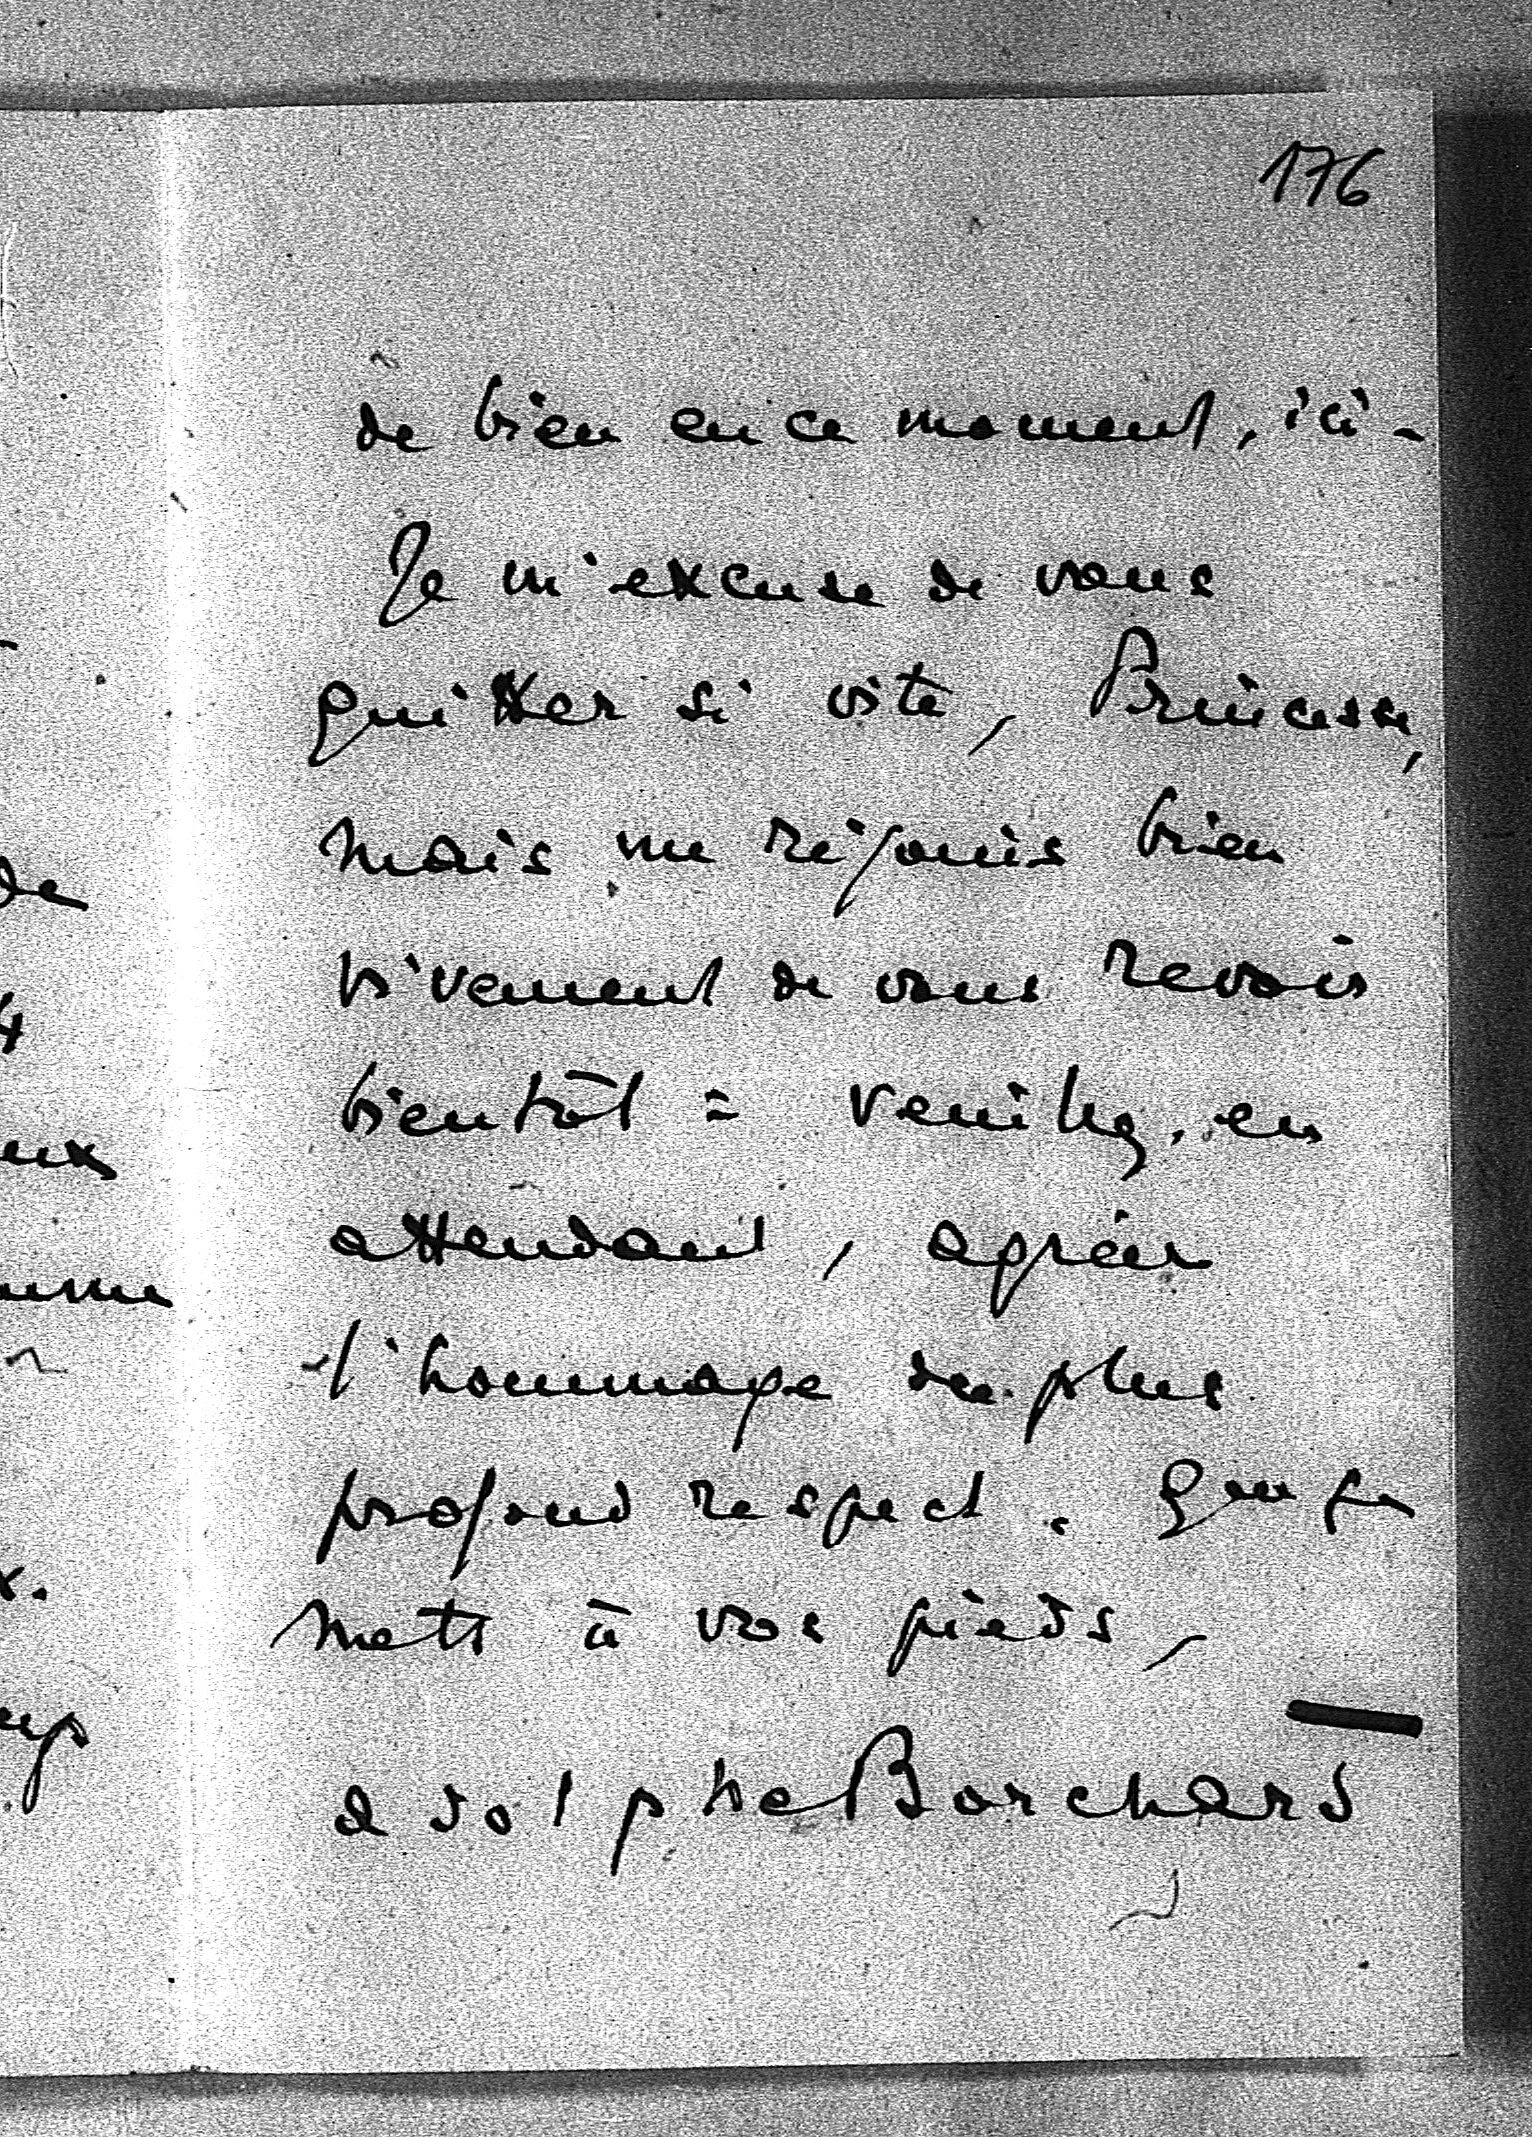 176
de bien en ce moment, ici -
Je m'excuse de vous
quitter si vite, Princesse,
mais me réjouis bien
vivement de vous revoir
bientôt = veuillez, en
attendant, agréer
l'hommage du plus
profond respect. Que je
mets à vos pieds,
adolphe Borchard